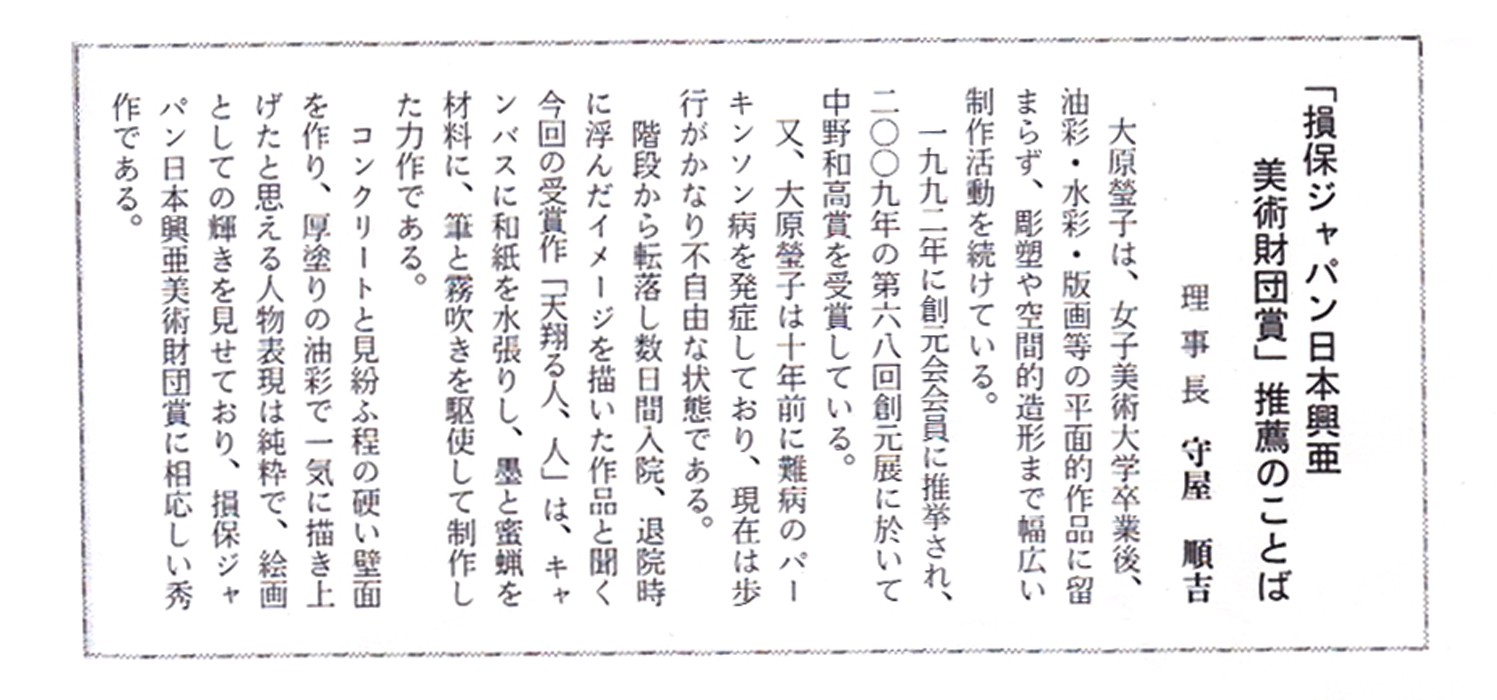 「損保ジャパン日本興亜
美術財団賞」推薦のことば
理事長 守屋 順吉
大原瑩子は、女子美術大学卒業後、
油彩・水彩・版画等の平面的作品に留
まらず、彫塑や空間的造形まで幅広い
制作活動を続けている。
一九九二年に創元会会員に推挙され、
二〇〇九年の第六八回創元展に於いて
中野和高賞を受賞している。
又、大原瑩子は十年前に難病のパー
キンソン病を発症しており、現在は歩
行がかなり不自由な状態である。
階段から転落し数日間入院、退院時
に浮んだイメージを描いた作品と聞く
今回の受賞作「天翔る人、人」は、キャ
ンバスに和紙を水張りし、墨と蜜蝋を
材料に、筆と霧吹きを駆使して制作し
た力作である。
コンクリートと見紛ふ程の硬い壁面
を作り、厚塗りの油彩で一気に描き上
げたと思える人物表現は純粋で、絵画
としての輝きを見せており、損保ジャ
パン日本興亜美術財団賞に相応しい秀
作である。